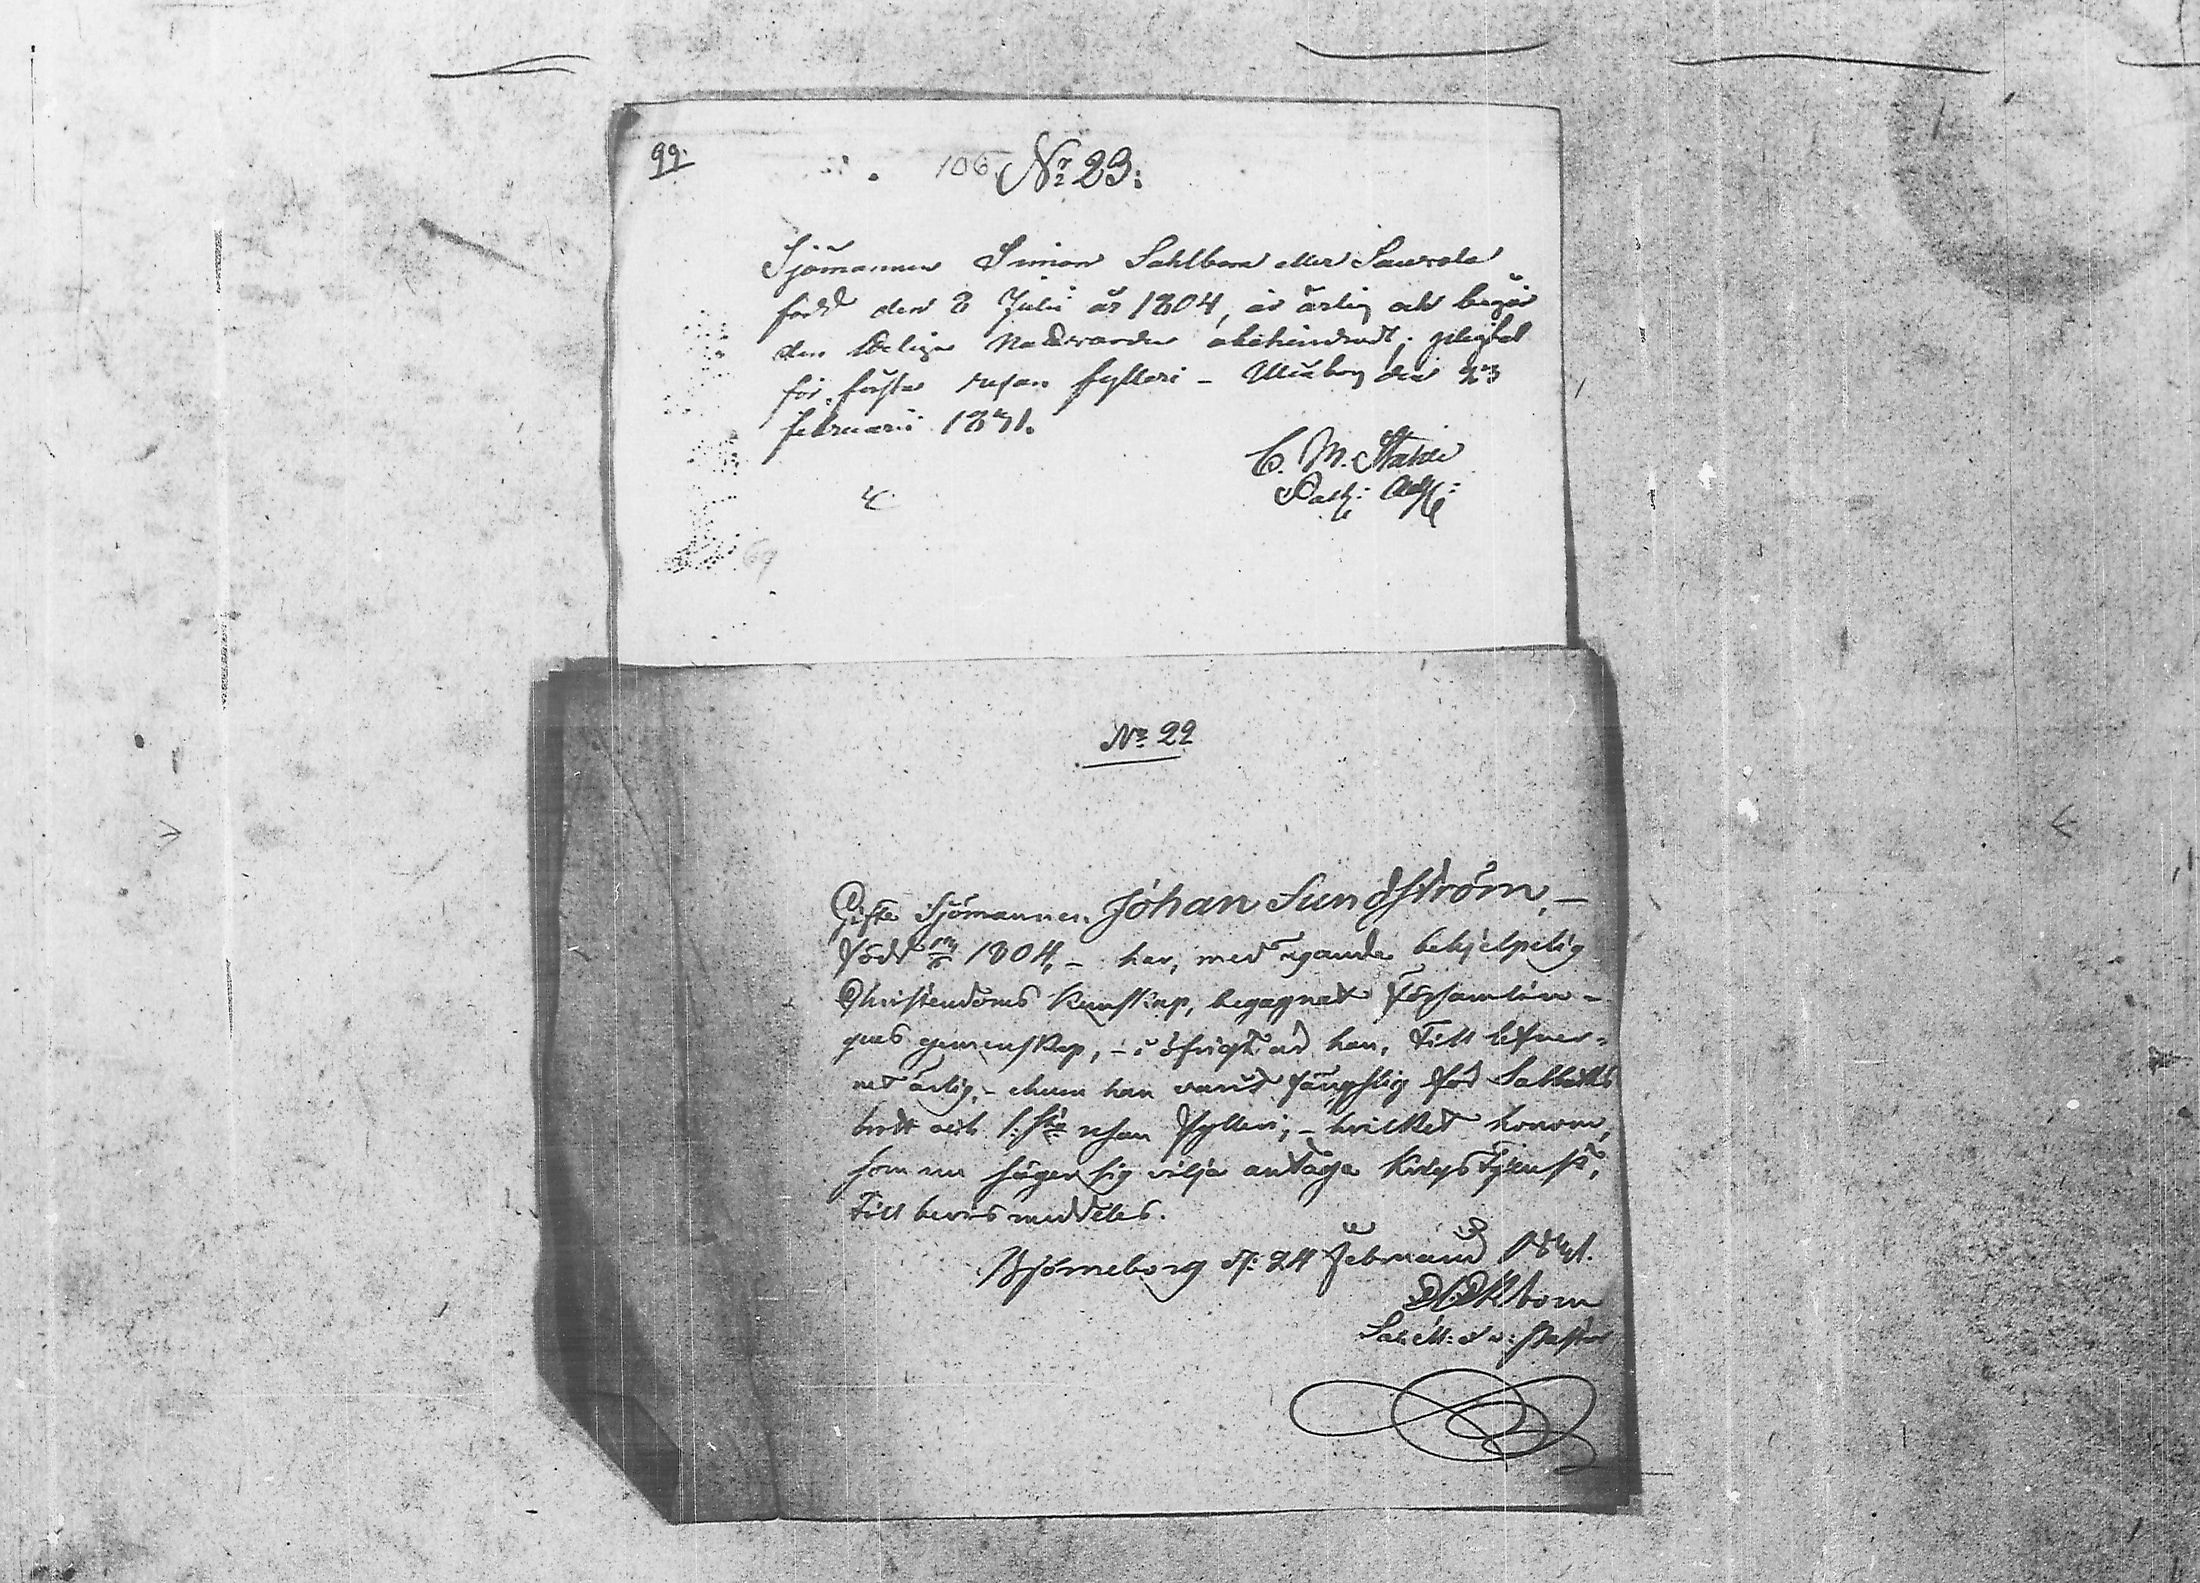 99.
106 No 23:
Sjömannen Simon Sahlbom eller Saurola
född den 8 Julii år 1804, är ärlig och begår
den Heliga Nattvarden obehindradt; pligtad
för första resan fylleri - Ulfsby den 23
februarii 1841.
C. M.
Past: Adj:
69
No 22
Gifte Sjömannen Johan Sundström, -
född 1804, - har, med egande behjelpelig
Christendoms Kunskap, begagnat Församlin-
gens gemenskap, - i öfrigt är han, till lefver-
net ärlig, - ehuru han varit för Sabbats
brott och 1:sta resan fylleri; - hvilket honom,
som nu säger sig vilja antaga Krigstjenst,
till bevis meddeles.
Björneborg d: 24 Februarii 1841.
v: Pastor